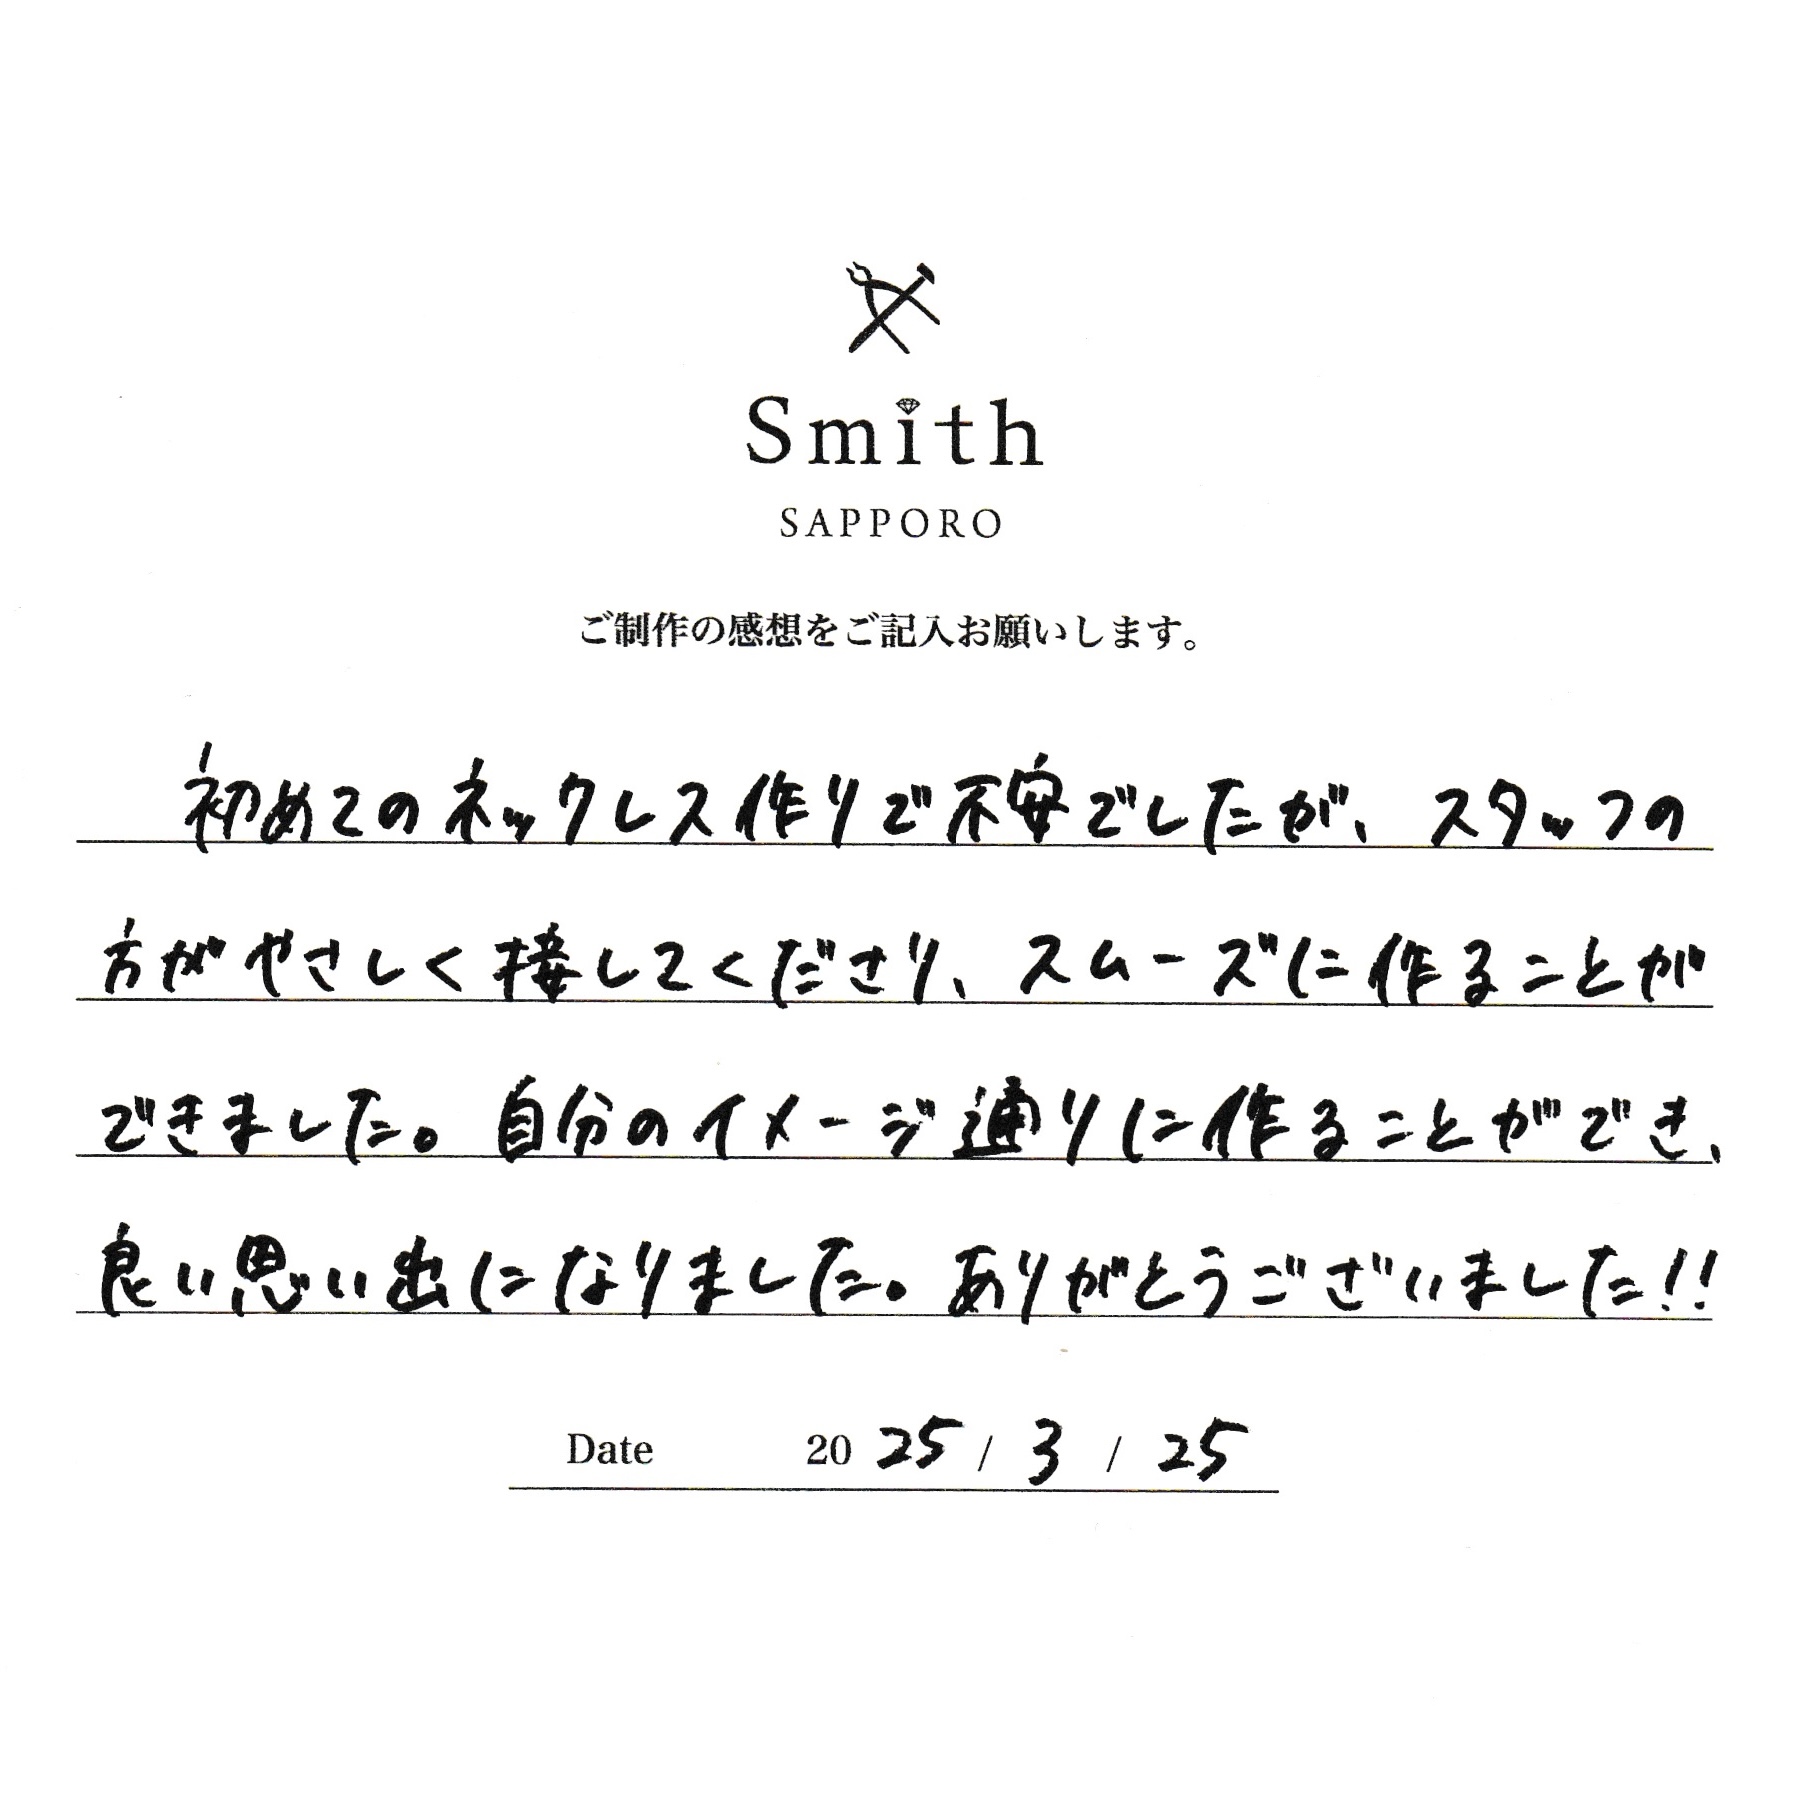 Smith
SAPPORO
ご制作の感想をご記入お願いします。
初めてのネックレス作りで不安でしたが、スタッフの
方がやさしく接してくださり、スムーズに作ることが
できました。自分のイメージ通りに作ることができ、
良い思い出になりました。ありがとうございました!!
Date 2025/3/25